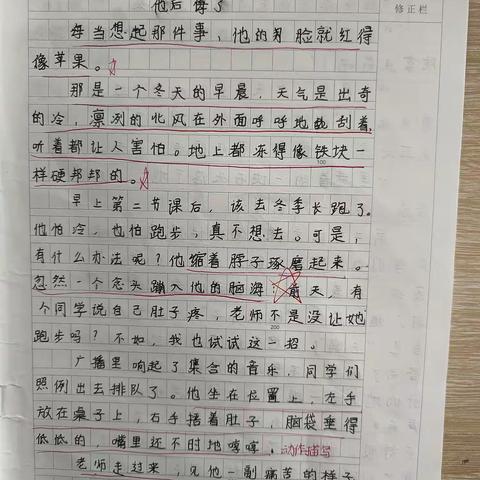 修正栏
他后悔了
每当想起那件事，他的脸就红得
像苹果。
那是一个冬天的早晨，天气是出奇
的冷，凛冽的北风在外面呼呼地刮着，
听着都让人害怕。地上都冻得像铁块一
100
样硬邦邦的。
早上第二节课后，该去冬季长跑了。
他怕冷，也怕跑步，真不想去。可是，
有什么办法呢？他缩着脖子琢磨起来。
忽然一个念头蹦入他的脑海：前天，有
个同学说自己肚子疼，老师不是没让她
200
跑步吗？不如，我也试试这一招。
广播里响起了集合的音乐，同学们
照例出去排队了。他坐在位置上，左手
放在桌子上，右手捂着肚子，脑袋垂得
低低的，嘴里还不时地哼哼。动作描写
老师走过来，见他一副痛苦的样子